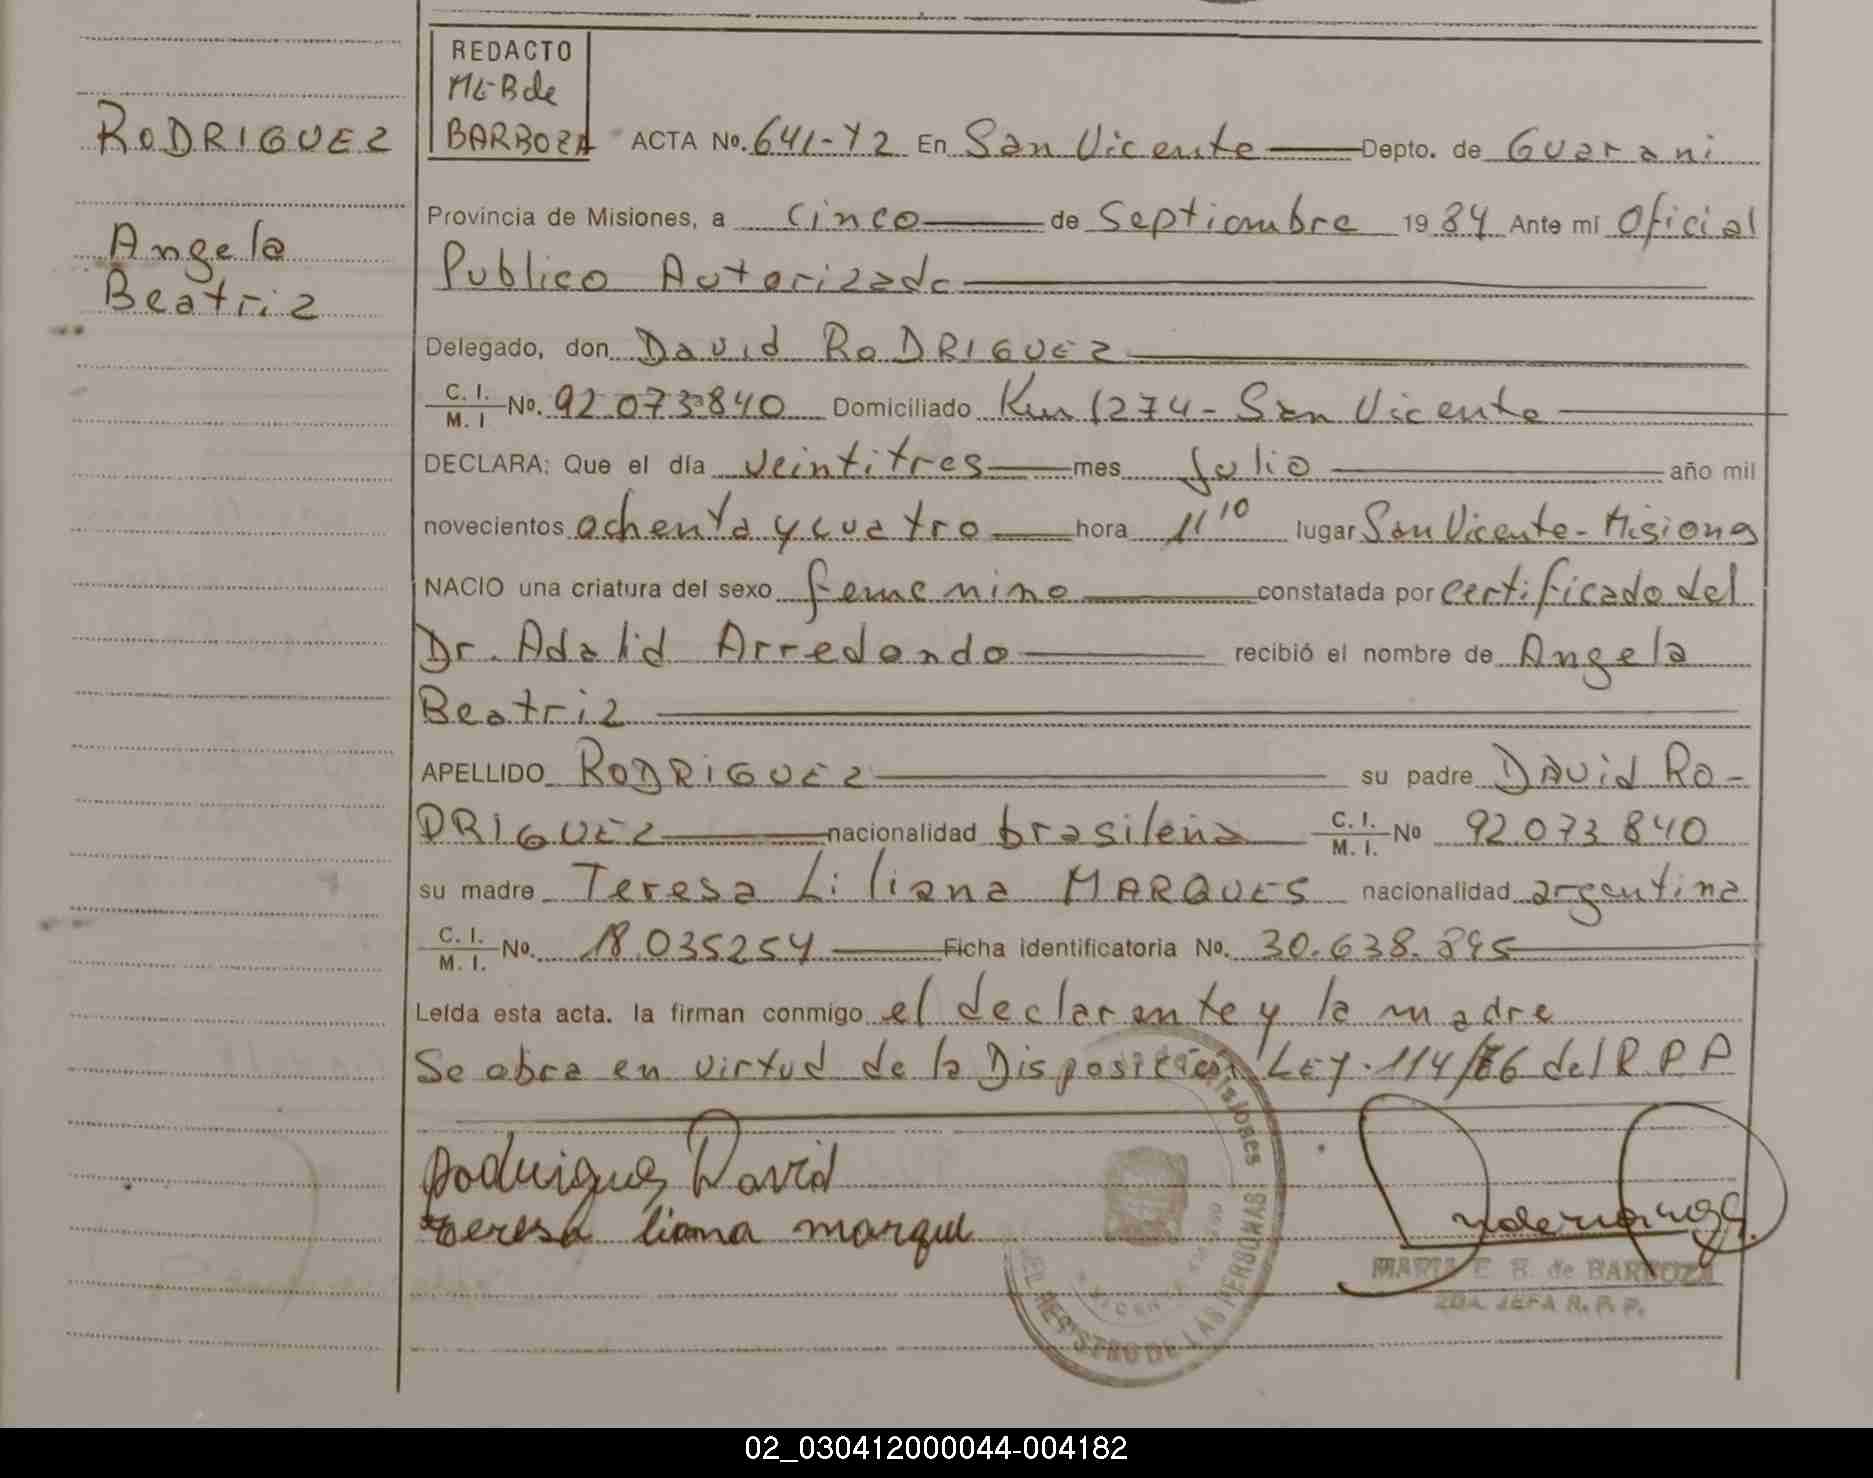 RODRIGUEZ
Angela
Beatriz
REDACTO
ME B de
BARBOZA
ACTA No. 641-Y2 En San Vicente Depto. de Guarani
Provincia de Misiones, a cinco de Septiembre 1984 Ante mí Oficial
Publico Autorizado
Delegado, don David RODRIGUEZ
C. I. M. I No. 92 073 840 Domiciliado Km 1274 - San Vicente
DECLARA: Que el día veintitres mes Julio año mil
novecientos ochenta y cuatro hora 11 10 lugar San Vicente - Misiones
NACIO una criatura del sexo femenino constatada por certificado del
Dr. Adalid Arredondo recibió el nombre de Angela
Beatriz
APELLIDO RODRIGUEZ su padre DAVID RO-
DRIGUEZ nacionalidad brasileña C. I. M. I. No 92.073 840
su madre Teresa Liliana MARQUES nacionalidad argentina
C. I. M. I. No. 18.035254 Ficha identificatoria No. 30.638.895
Leída esta acta. la firman conmigo el declarante y la madre
Se obra en virtud de la Disposición LEY. 114/66 del R P P
Rodrigues David
teresa liana marque
Misiones
DEL REGISTRO DE LAS PERSONAS
MARIA E. B. de BARBOZA
2DA JEFA R. P. P.
02_030412000044-004182